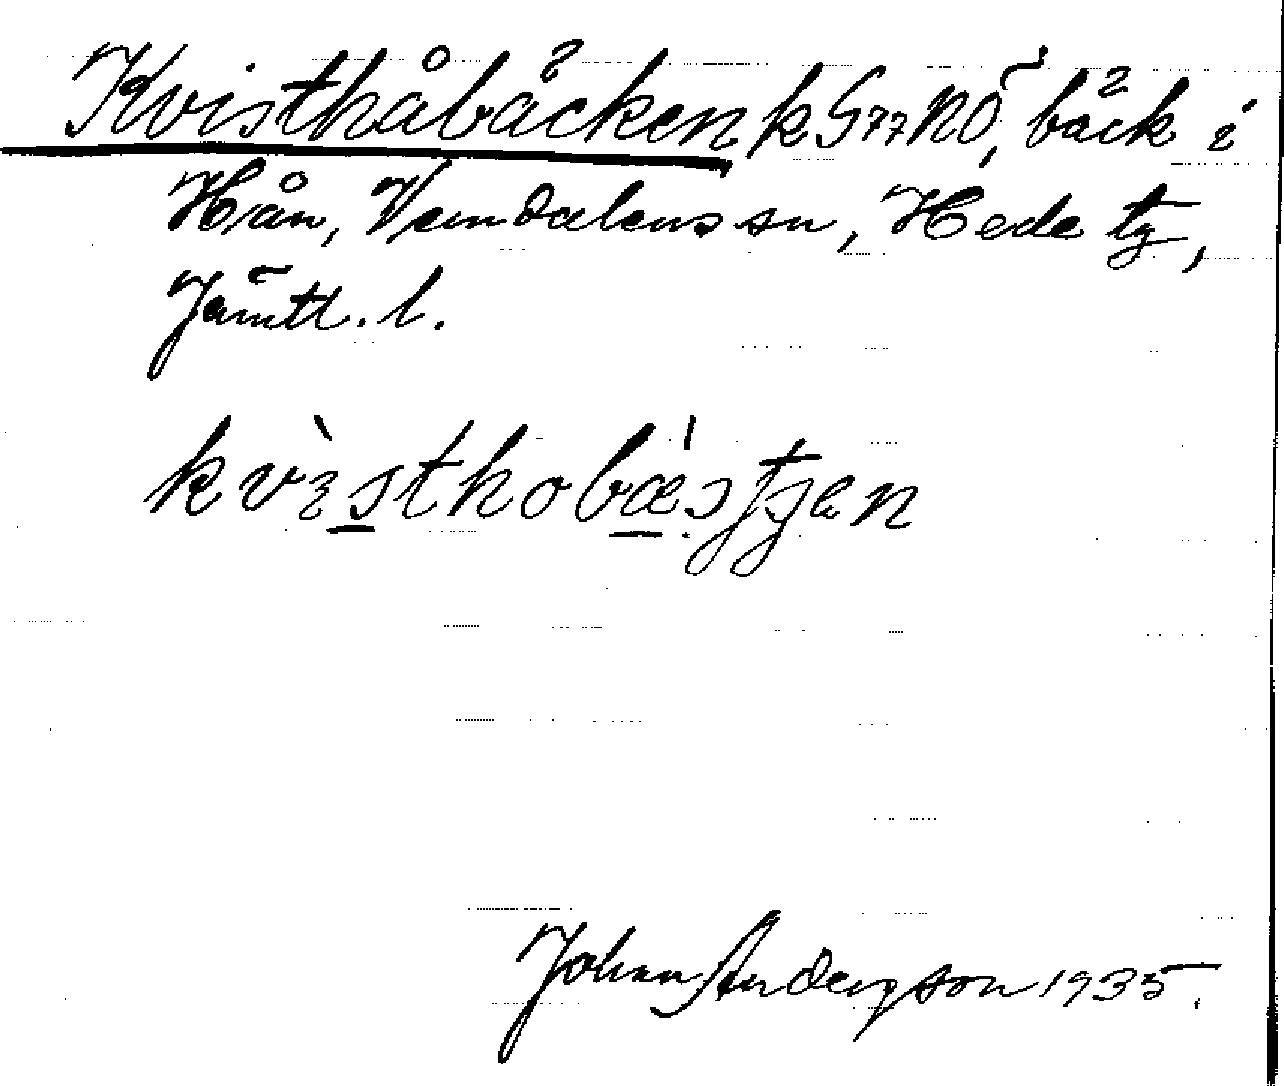 Kvisthåbäcken k G77NÖ, bäck i
Hån, Vemdalens sn, Hede tg,
Jämtl. l.
kvìsthobæ̀stjen
Johan Anderson 1935.